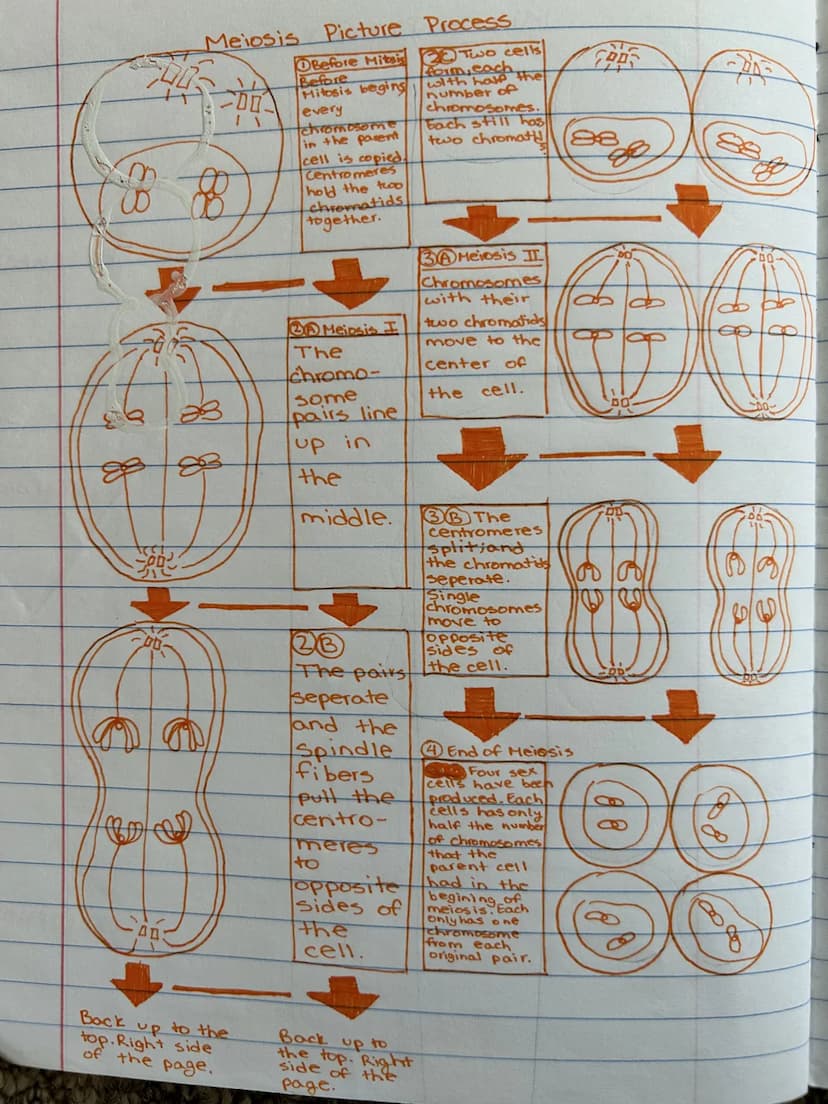 Meiosis Picture Process
① Before Mitosis
Before
Mitosis begins
every
chromosome
in the parent
cell is copied.
Centromeres
hold the two
chromatids
together.
②Ⓐ Meiosis I
The
chromo-
some
pairs line
up in
the
middle.
②Ⓑ
The pairs
seperate
and the
spindle
fibers
pull the
centro-
meres
to
opposite
sides of
the
cell.
Back up to the
top. Right side
of the page.
Back up to
the top. Right
side of the
page.
②Ⓒ Two cells
form, each
with half the
number of
chromosomes.
Each still has
two chromatids.
③Ⓐ Meiosis II
Chromosomes
with their
two chromatids
move to the
center of
the cell.
③Ⓑ The
centromeres
split, and
the chromatids
seperate.
Single
chromosomes
move to
opposite
sides of
the cell.
④ End of Meiosis
Four sex
cells have been
produced. Each
cells has only
half the number
of chromosomes
that the
parent cell
had in the
begining of
meiosis. Each
only has one
chromosome
from each
original pair.